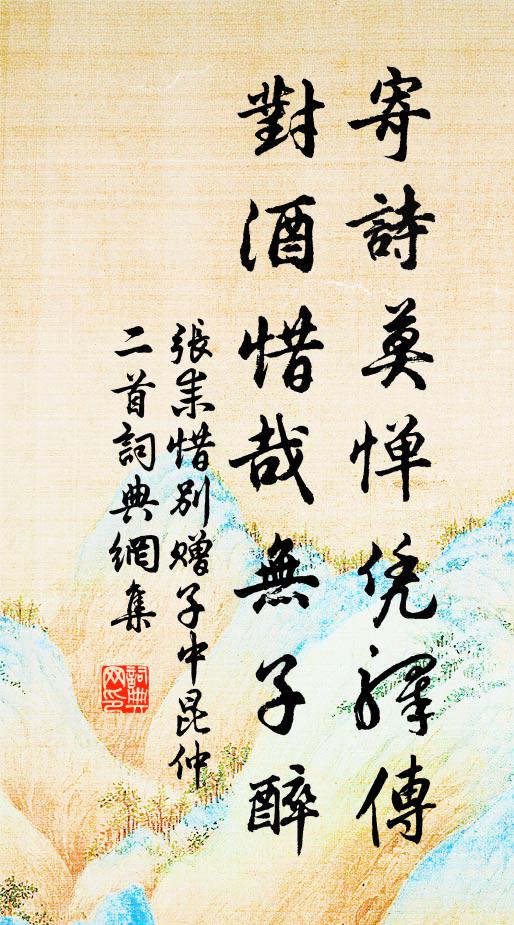 寄詩莫惮凭驛傳
對酒惜哉無子醉
張耒惜別贈子中昆仲
二首詞典網集
詞典网印